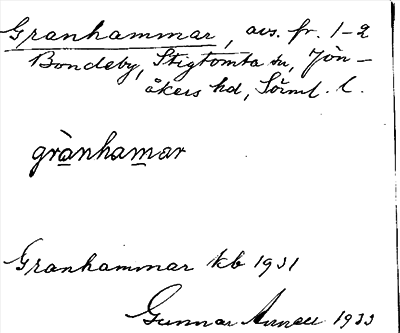 Granhammar, avs. fr. 1-2
Bondeby, Stigtomta sn, Jön-
åkers hd, Söml. l.
grànhamar
Granhammar kb 1931
Gunnar 1933